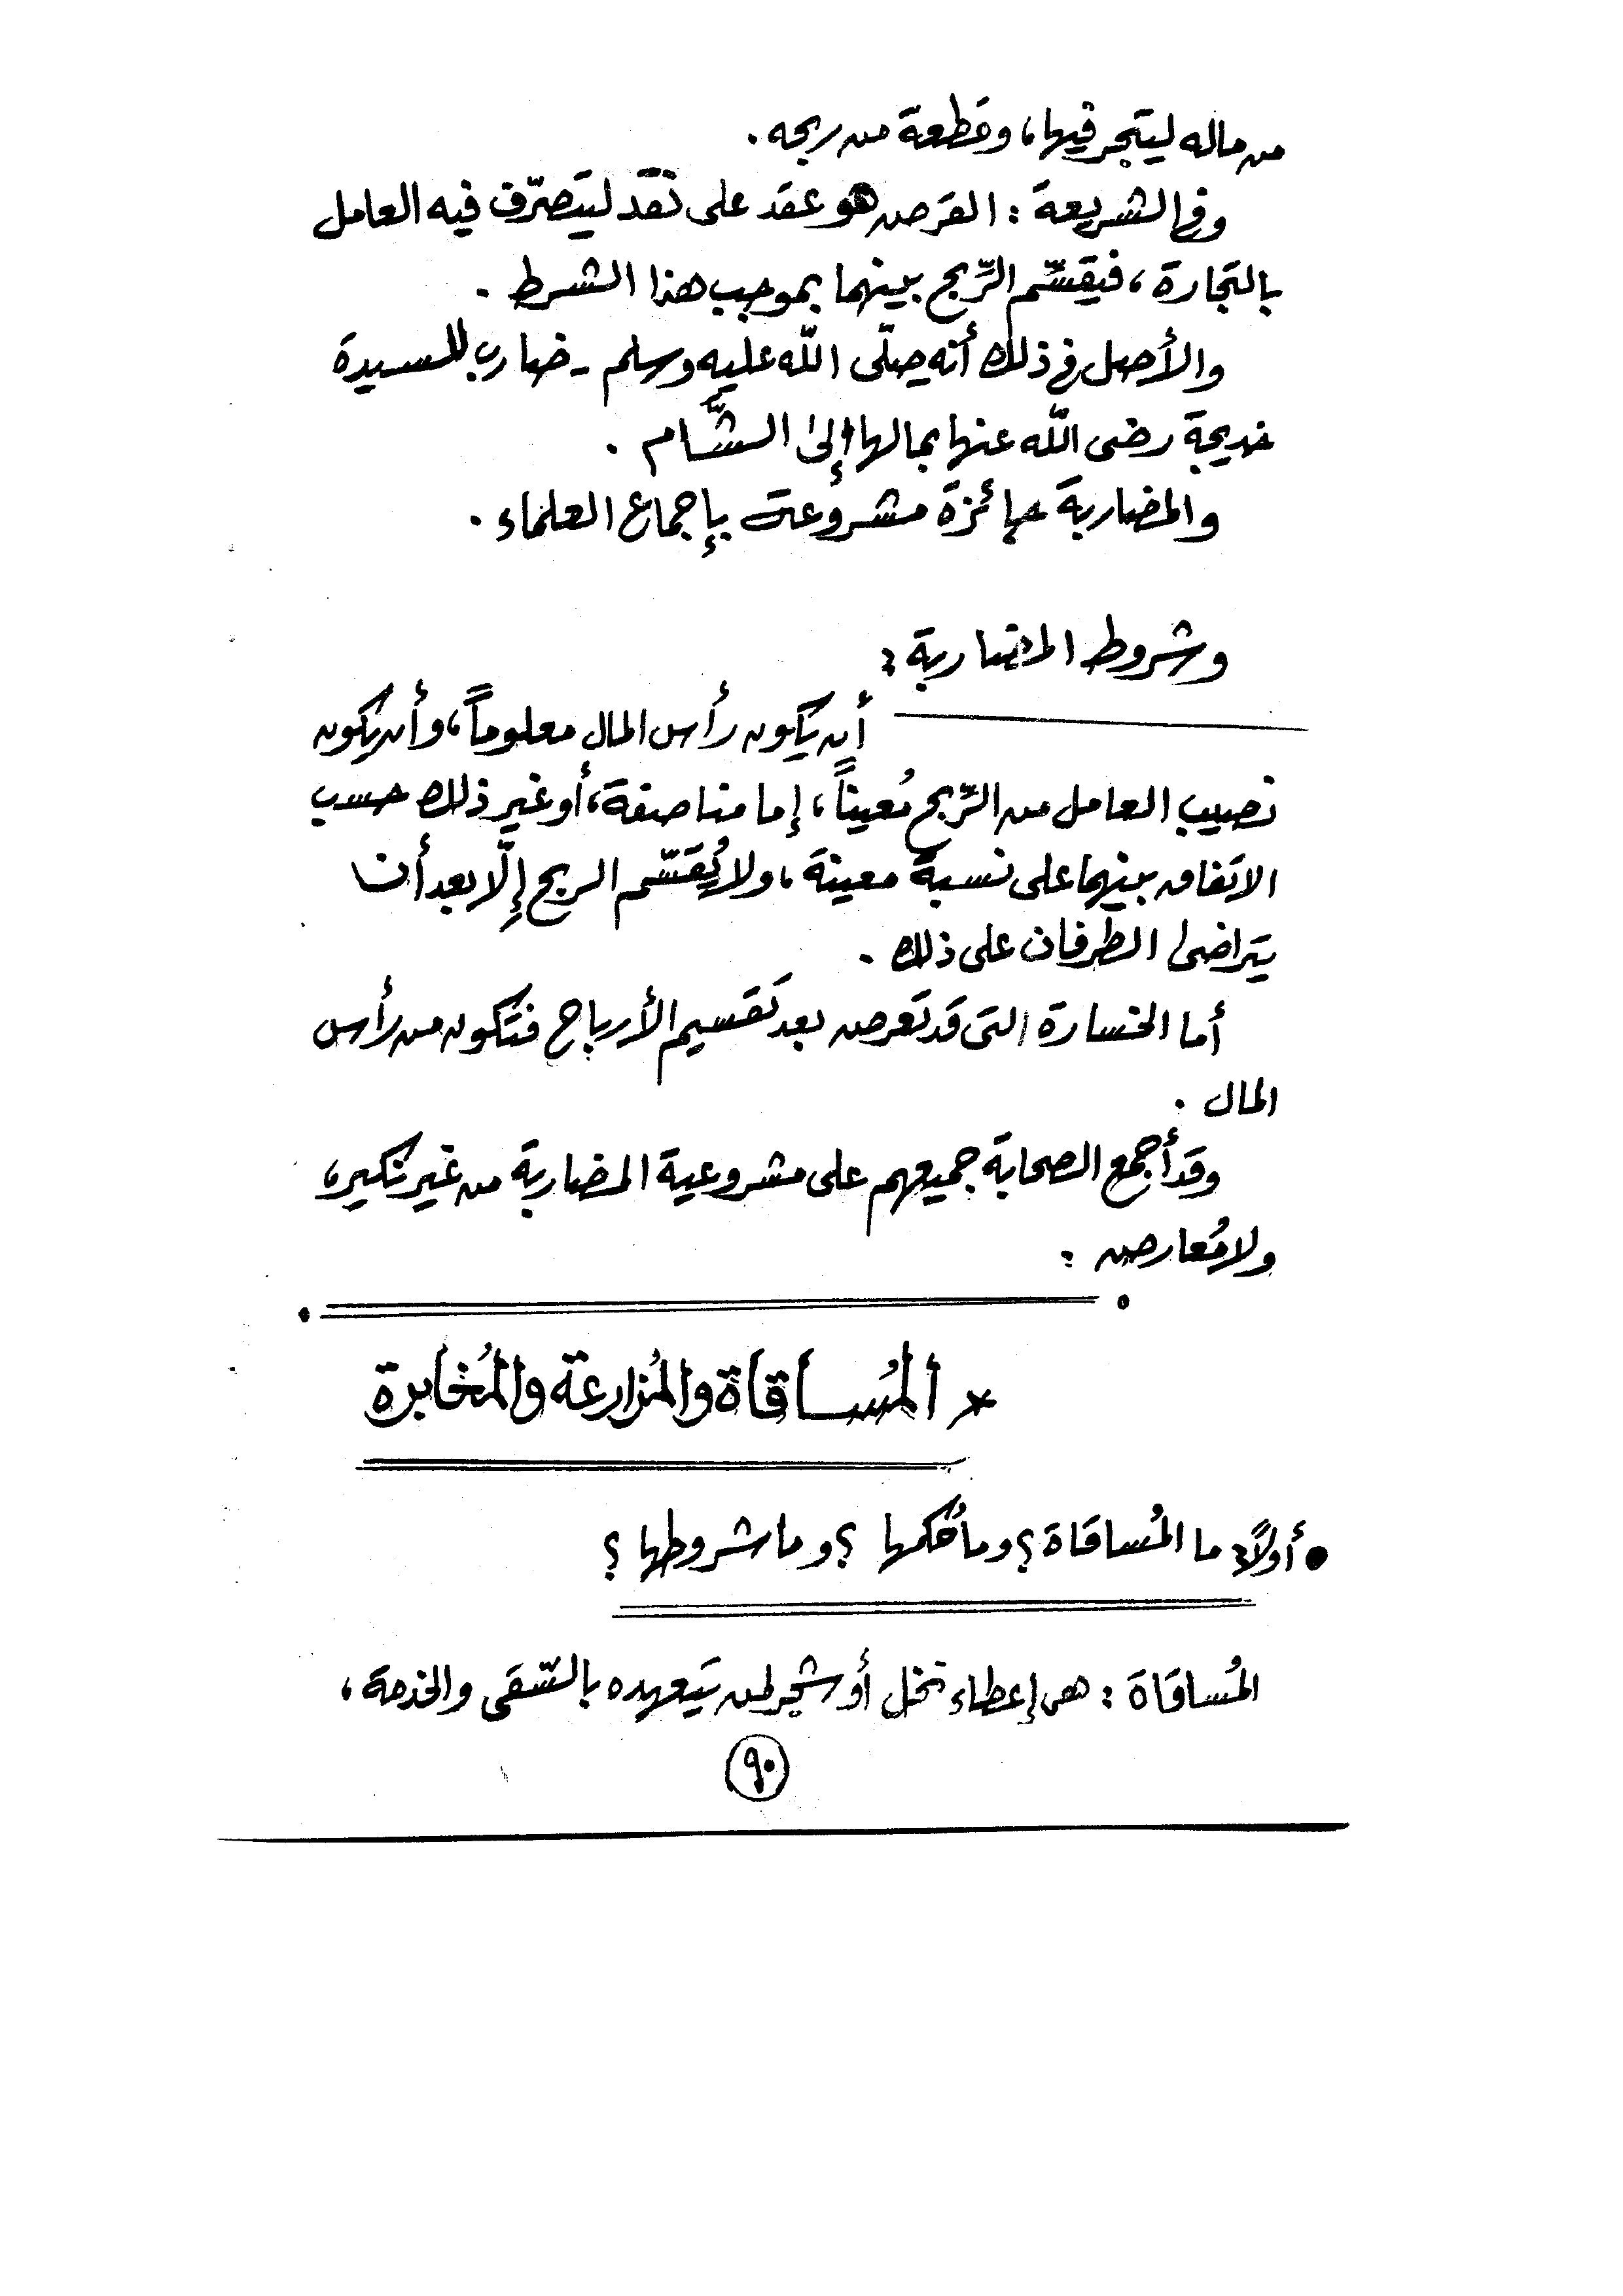 من ماله ليتجر فيها، وقطعة من ربحه .
وفى الشريعة : القرض هو عقد على نقد ليتصرّف فيه العامل
بالتجارة ، فيقسّم الرِّبح بينهما بموجب هذا الشرط .
والأصل فى ذلك أنه صلّى اللّه عليه وسلم - ضارب للسيدة
خديجة رضى اللّه عنها بمالها إلى الشَّام .
والمضاربة جائزة مشروعة بإجماع العلماء .
وشروط المضاربة :
أن يكون رأس المال معلوماً، وأن يكون
نصيب العامل من الرِّبح مُعيناً ، إما مناصفة، أو غير ذلك حسب
الاتفاق بينهما على نسبة معينة ، ولا يُقسّم الربح إلّا بعد أن
يتراضى الطرفان على ذلك .
أما الخسارة التى قد تعرض بعد تقسيم الأرباح فتكون من رأس
المال .
وقد أجمع الصحابة جميعهم على مشروعية المضاربة من غير نكير،
ولا مُعارض :
* ألمُسأقاة والمُزارعة والمُخأبرة
• أولاً: ما المُساقاة ؟ وما حُكمها ؟ وما شروطها ؟
المُساقاة : هى إعطاء نخل أو شجر لمن يتعهده بالسّقى والخدمة ،
٩٠